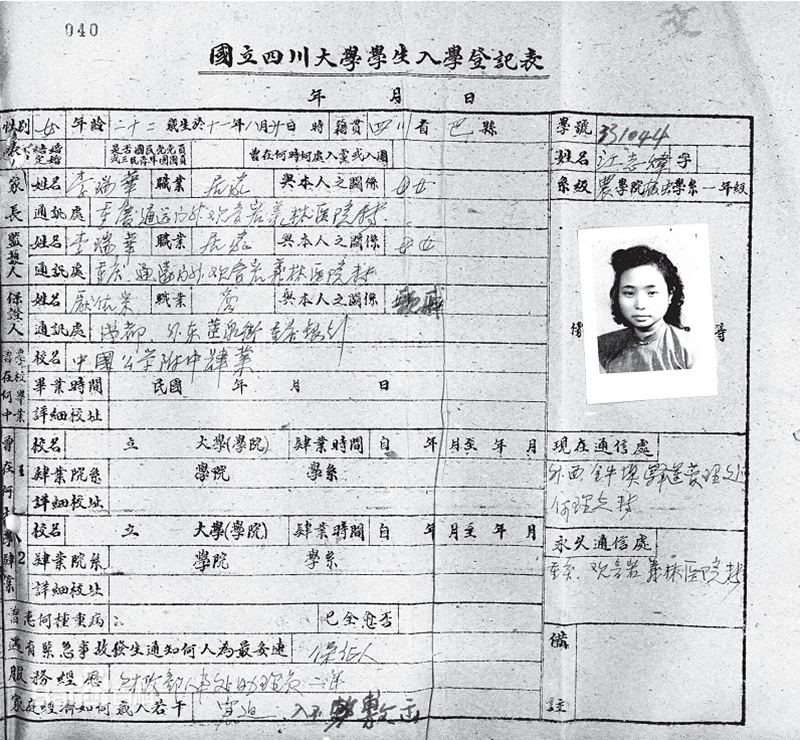 040
國立四川大學學生入學登記表
年 月 日
性別 女 年齡 二十二 歲生於十一年八月廿日 時 籍貫 四川省 巴縣
學號 331044
姓名 江志煒 字
是否國民黨黨員或三民青年團團員 曾在何時何處入黨或入團
系級 農學院 學系一年級
家長 姓名 李瑞華 職業 居家 與本人之關係 母女
通訊處 重慶通遠門外观音岩義林医院转
監護人 姓名 李瑞華 職業 居家 與本人之關係 母女
通訊處 重庆通遠门外观音岩義林医院转
保證人 姓名 職業 商 與本人之關係
通訊處 成都 外东
校名 中國公学附中肄業
畢業時間 民國 年 月 日
詳細校址
校名 立 大學(學院) 肄業時間 自 年 月至 年 月
現在通信處
1 肄業院系 學院 學系
外西
詳細校址
校名 立 大學(學院) 肄業時間 自 年 月至 年 月
永久通信處
2 肄業院系 學院 學系
重庆观音岩義林医院转
詳細校址
曾患何種重病 已全愈否
遇有緊急事故發生通知何人為最妥速 保証人
備註
服務經歷 财政部人事处助理员 二年
家庭經濟如何歲入若干 窘迫 入不敷